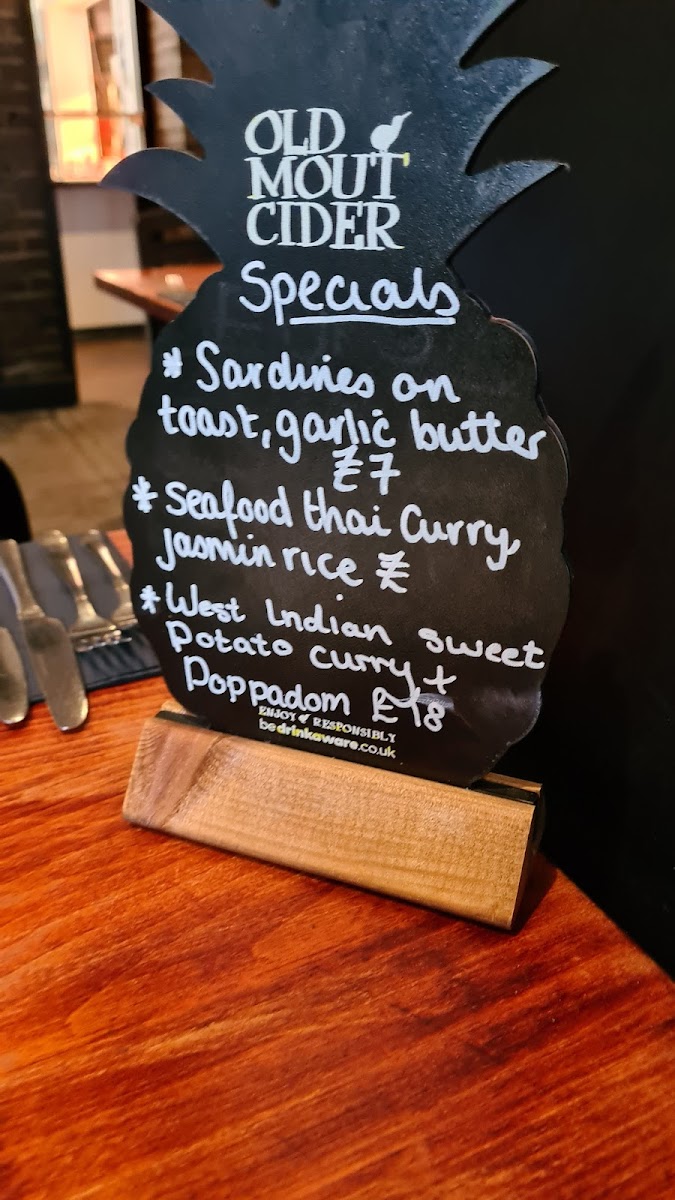 OLD
MOUT
CIDER
Specials
* Sardines on
toast, garlic butter
£7
* Seafood thai Curry,
jasmin rice £
* West Indian sweet
potato curry +
Poppadom £18
ENJOY RESPONSIBLY
bedrinkaware.co.uk